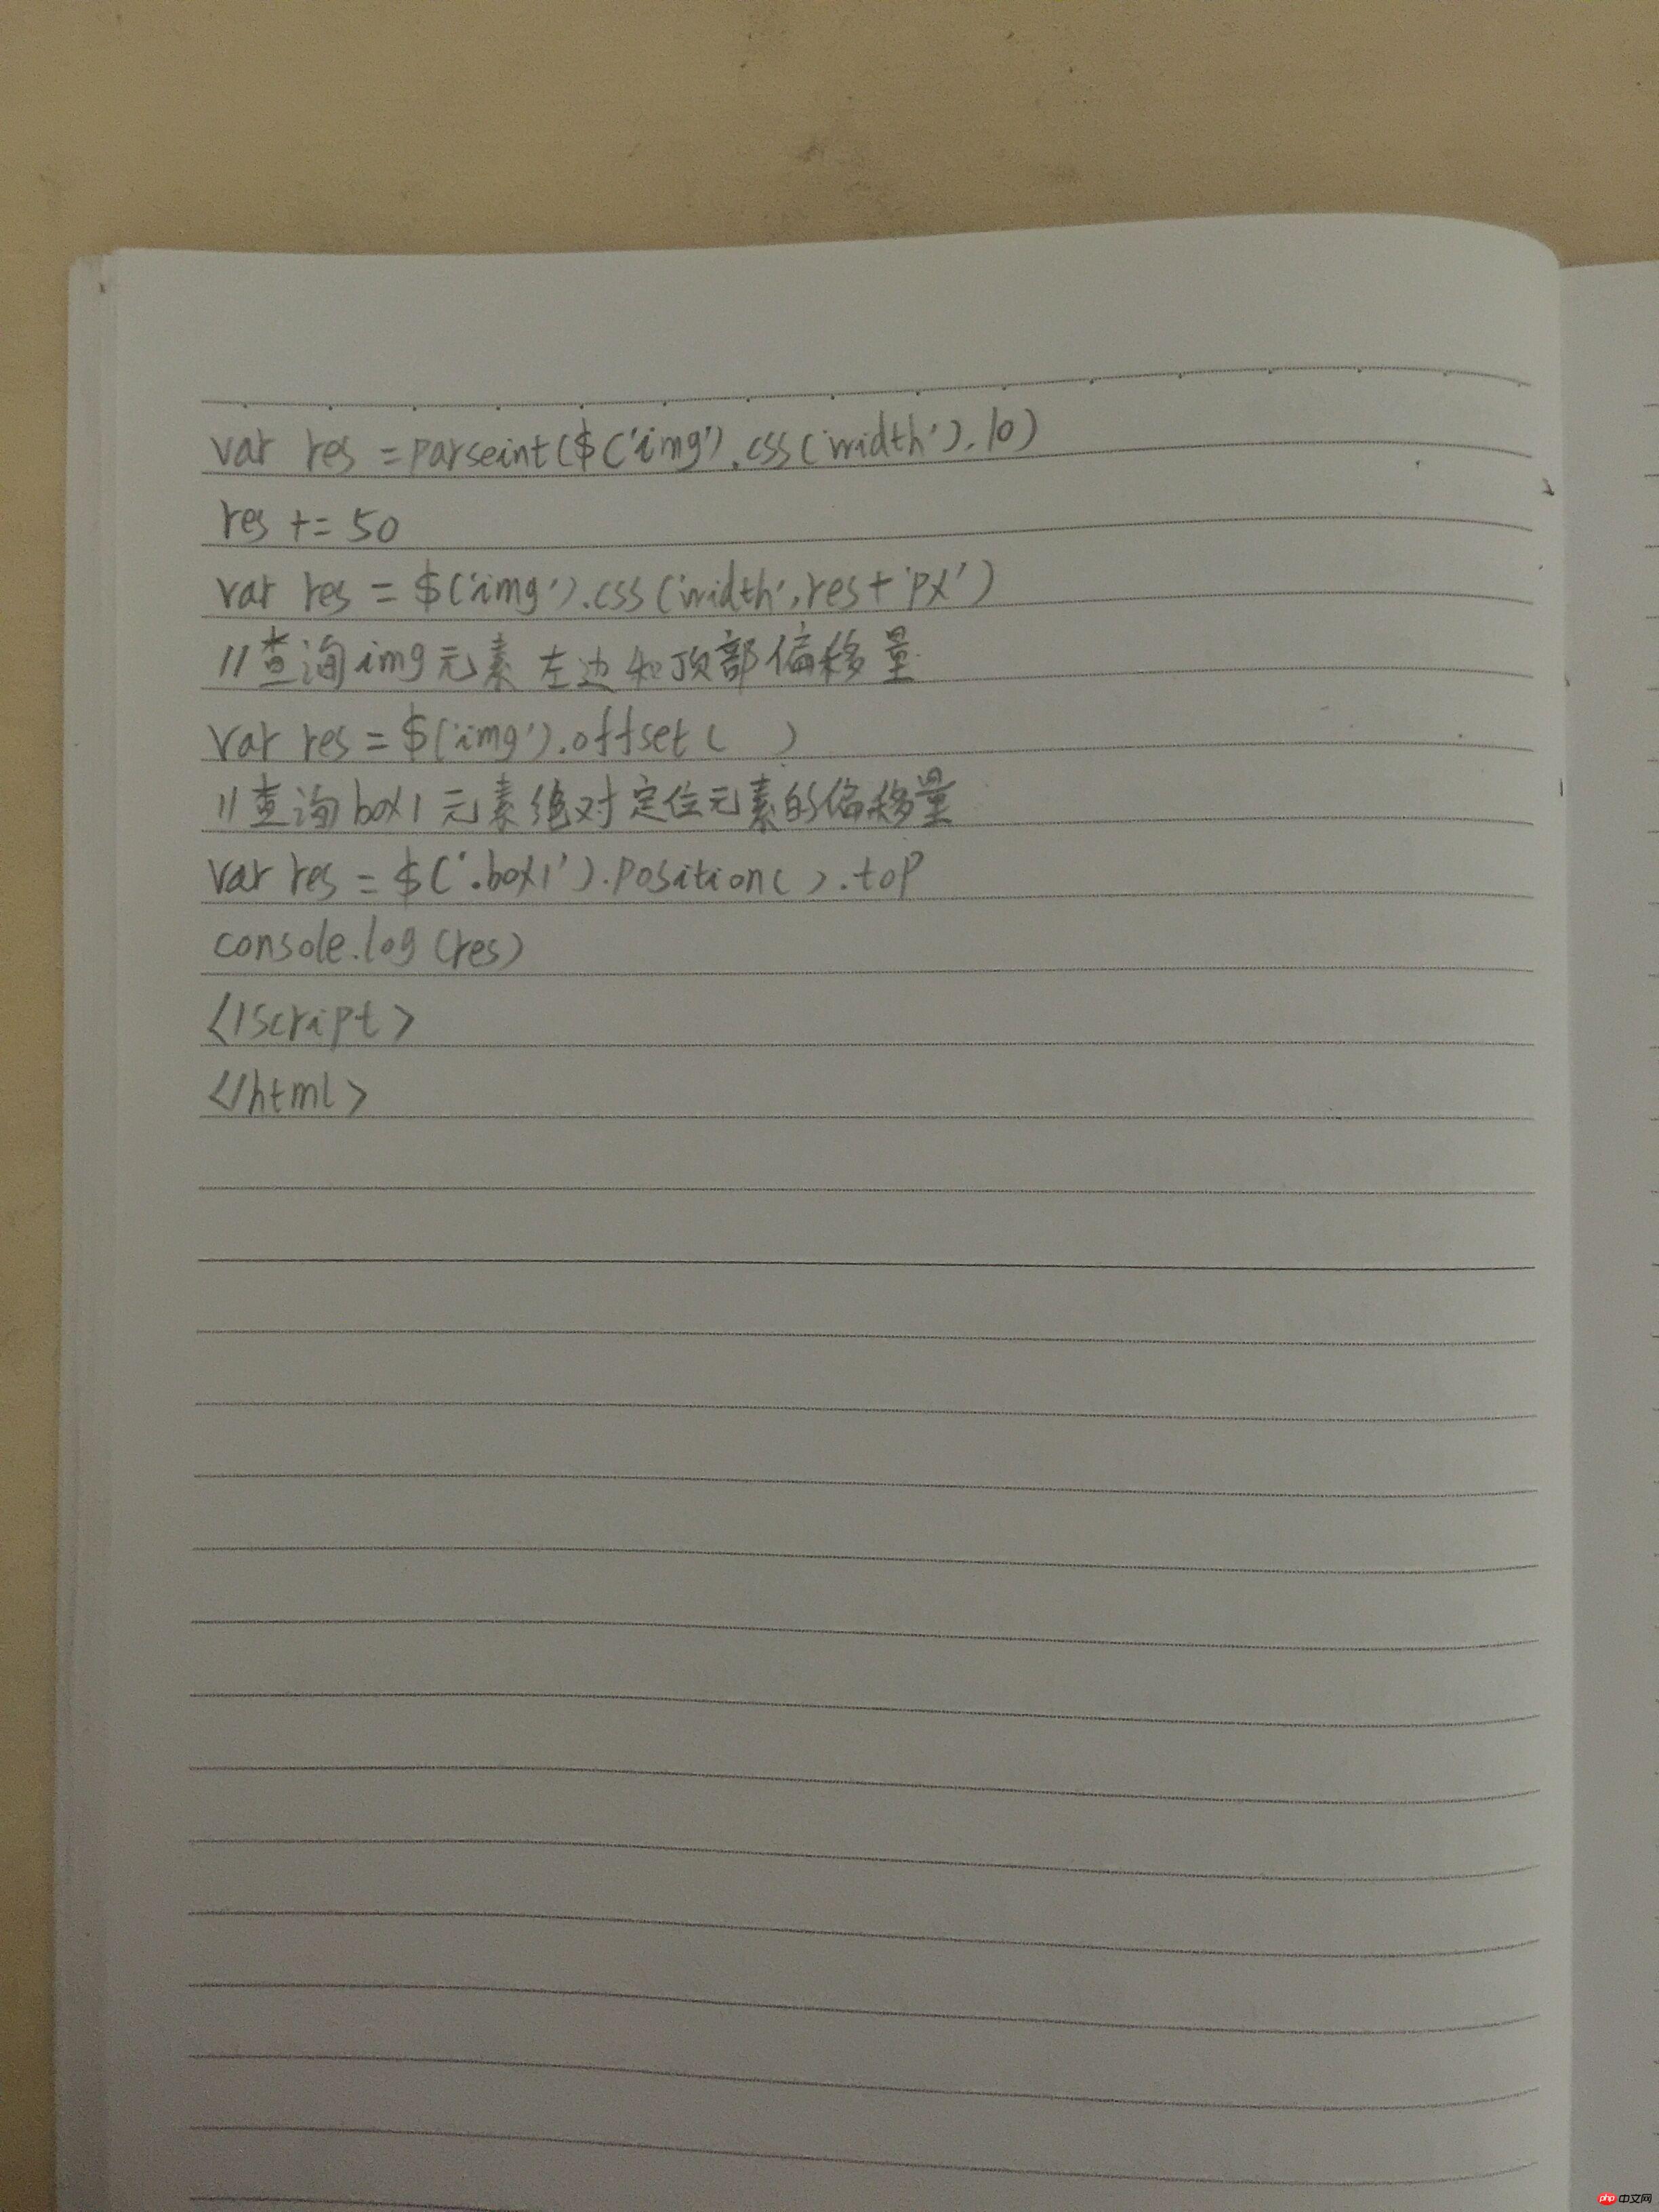 var res =parseint($('img').css('width'),10)
res += 50
var res = $('img').css('width',res+'px')
//查询img元素左边和顶部偏移量
var res = $('img').offset( )
//查询box1元素绝对定位元素的偏移量
var res = $('.box1').position( ).top
console.log(res)
</script>
</html>
php 中文网